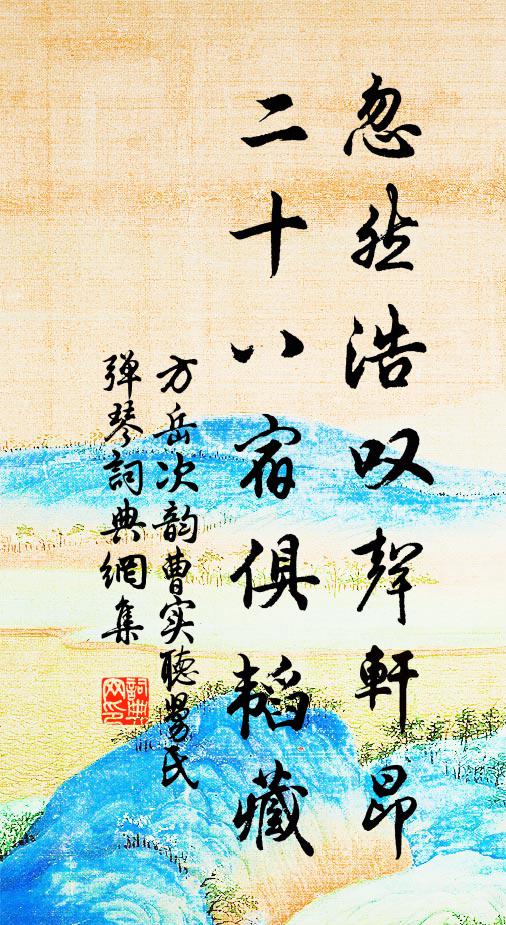 忽然浩叹聲軒昂
二十八宿俱韬藏
方岳次韵曹实聴昜氏
弹琴詞典網集
詞典网印